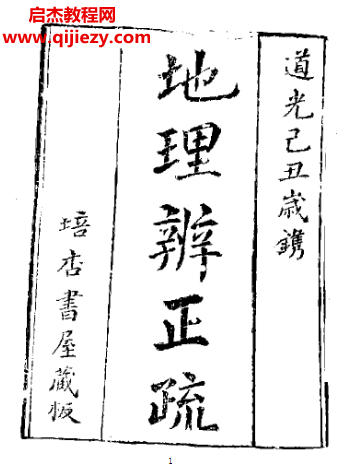 启杰教程网
www.qijiezy.com
道光己丑歲鐫
地理辨正疏
培杏書屋藏板
1